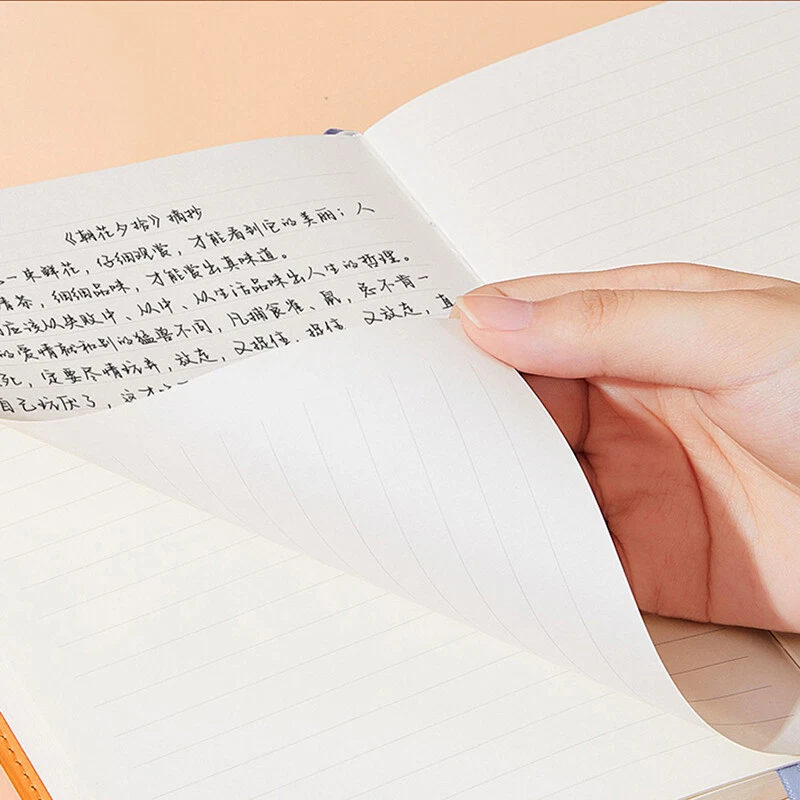 《朝花夕拾》摘抄
一束鲜花，仔细观赏，才能看到它的美丽；人
清茶，细细品味，才能赏出真味道。
应该从失败中、从中、从生活品味出人生的哲理。
的爱情就和别的猛兽不同，凡捕食雀、鼠，总不肯一
死，定要尽情玩弄，放走，又捉住，捉住，又放走，直
自己玩厌了，这才